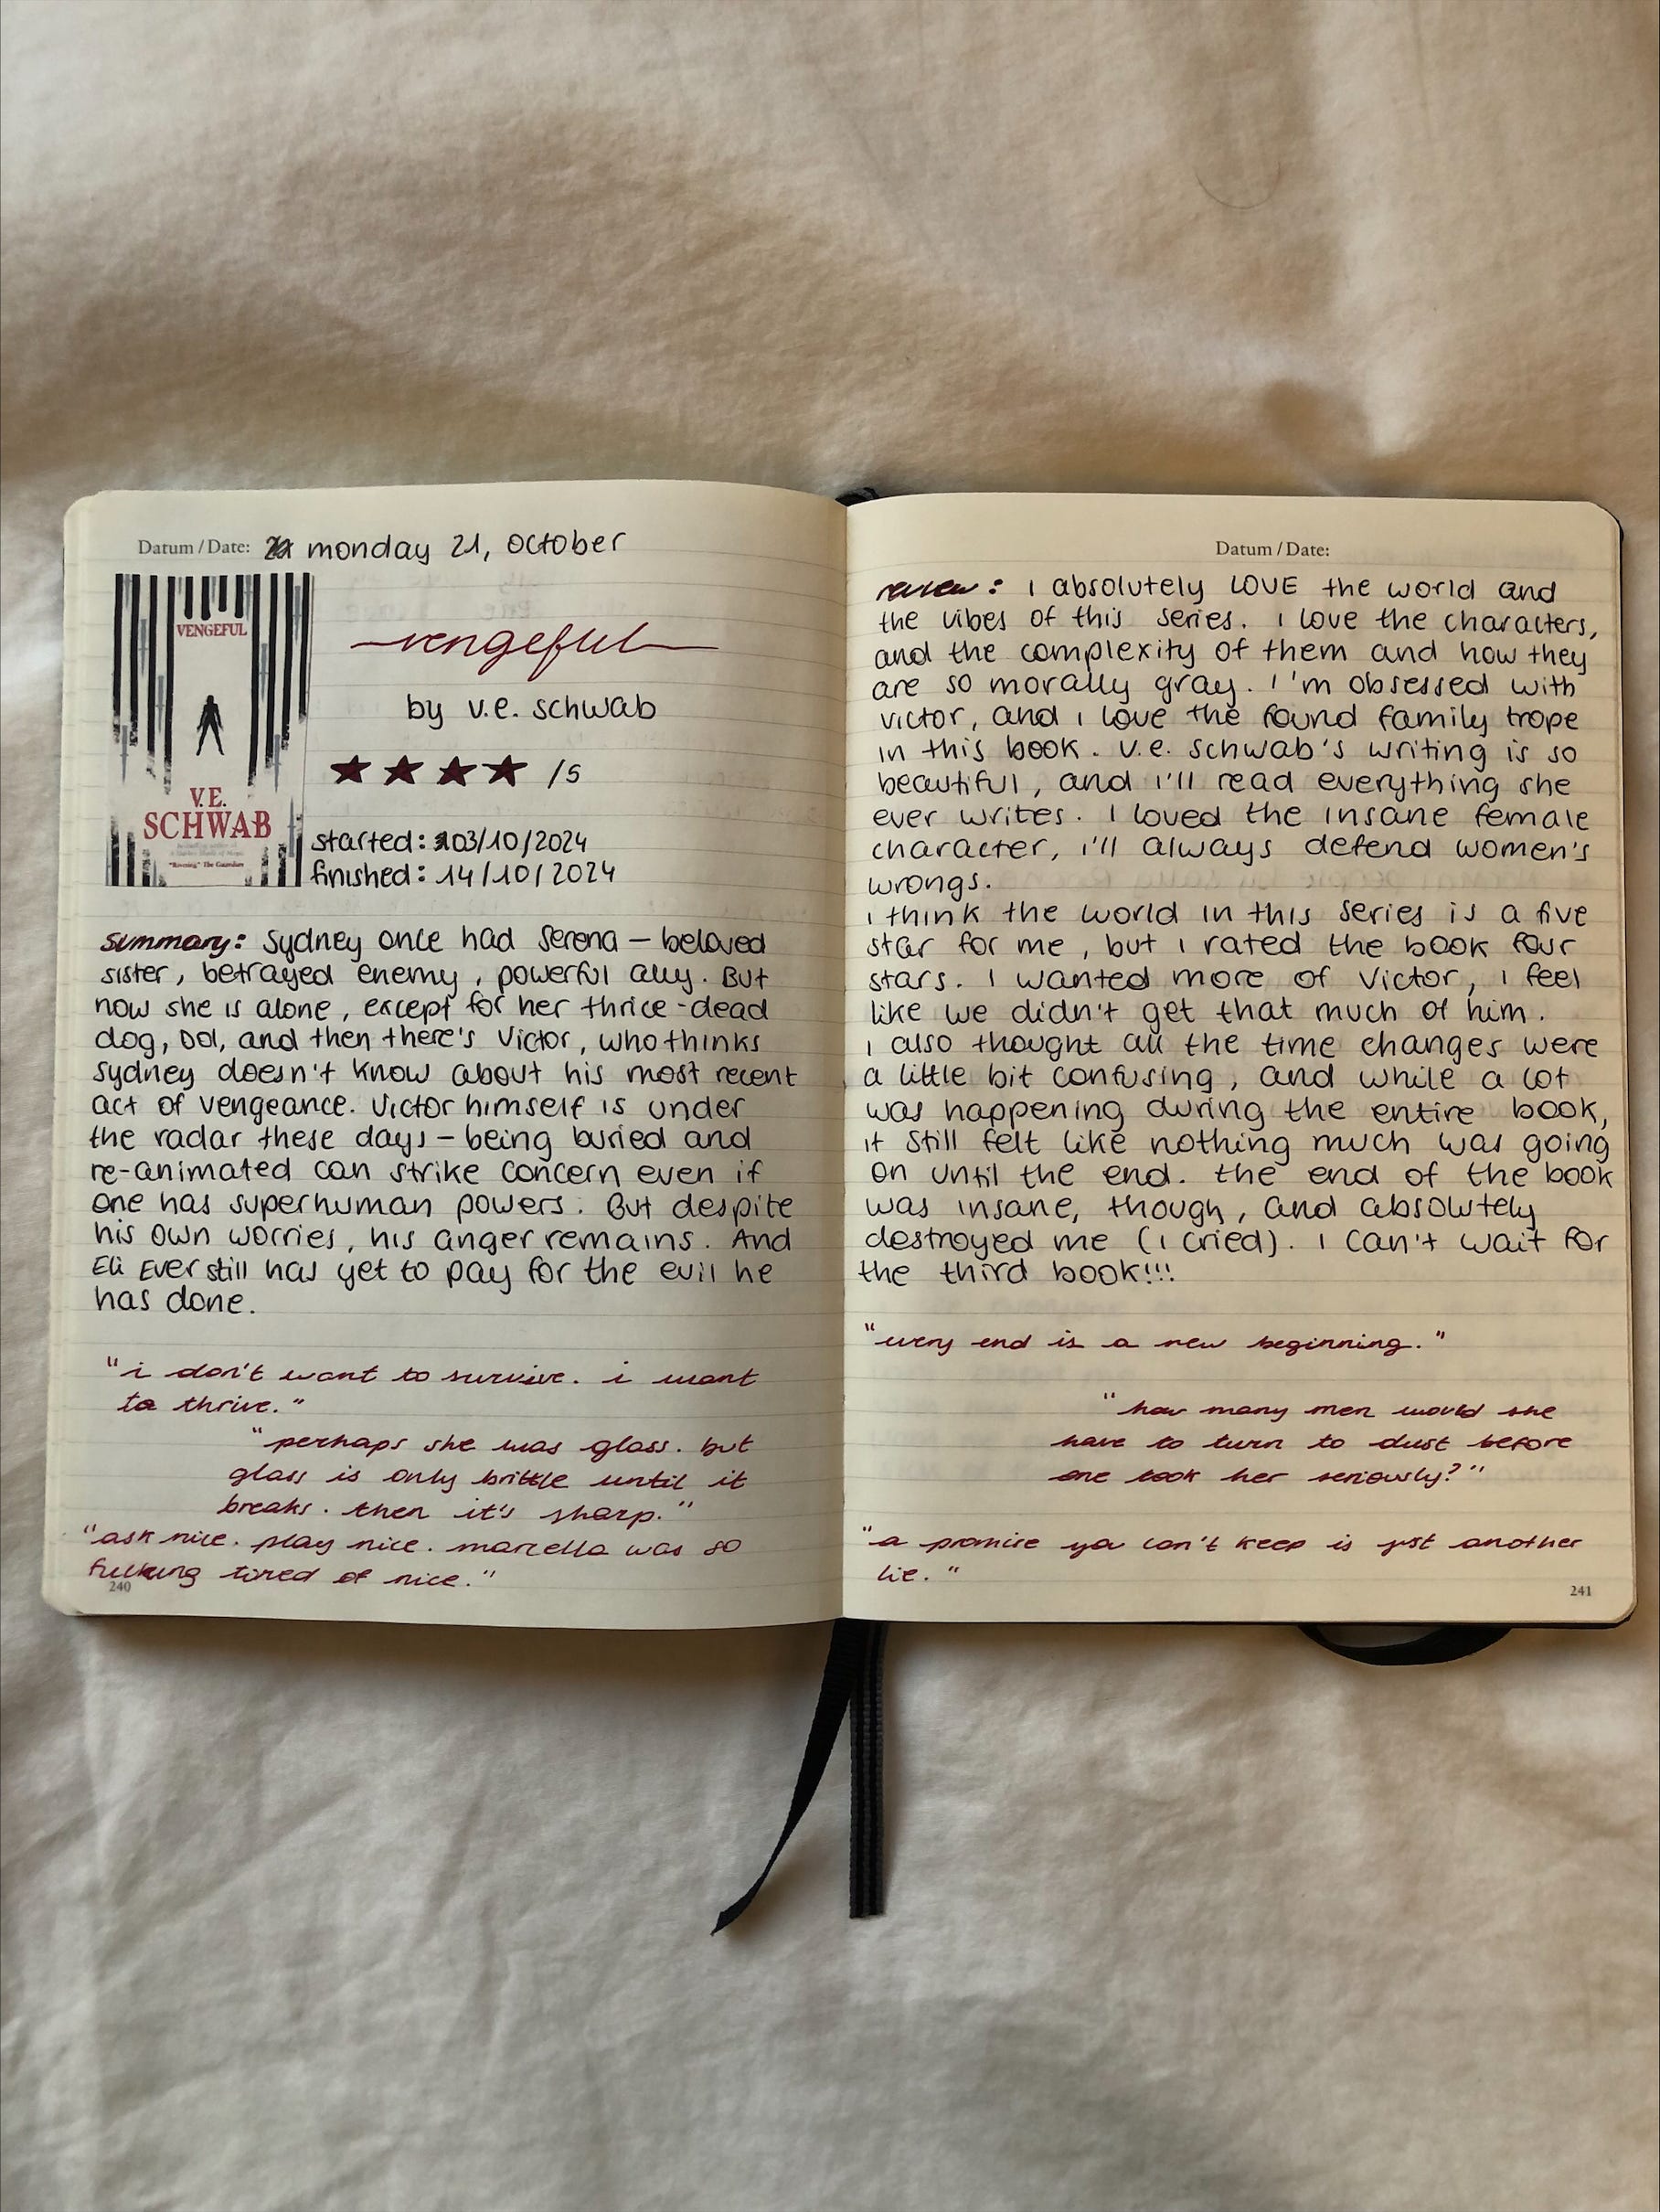 Datum / Date: monday 21, october
VENGEFUL
V.E.
SCHWAB
"Riveting." The Guardian
vengeful
by v.e. schwab
★ ★ ★ ★ /5
started: 03/10/2024
finished: 14/10/2024
summary: Sydney once had Serena – beloved
sister, betrayed enemy, powerful ally. But
now she is alone, except for her thrice-dead
dog, Dol, and then there's Victor, who thinks
Sydney doesn't know about his most recent
act of vengeance. Victor himself is under
the radar these days – being buried and
re-animated can strike concern even if
one has superhuman powers. But despite
his own worries, his anger remains. And
Eli Ever still has yet to pay for the evil he
has done.
"i don't want to survive. i want
to thrive."
"perhaps she was glass. but
glass is only brittle until it
breaks. then it's sharp."
"ask nice. play nice. marcella was so
fucking tired of nice."
240
Datum / Date:
review: I absolutely LOVE the world and
the vibes of this series. I love the characters,
and the complexity of them and how they
are so morally gray. I'm obsessed with
victor, and I love the found family trope
in this book. v.e. schwab's writing is so
beautiful, and I'll read everything she
ever writes. I loved the insane female
character, i'll always defend women's
wrongs.
I think the world in this series is a five
star for me, but I rated the book four
stars. I wanted more of Victor, I feel
like we didn't get that much of him.
I also thought all the time changes were
a little bit confusing, and while a lot
was happening during the entire book,
it still felt like nothing much was going
on until the end. the end of the book
was insane, though, and absolutely
destroyed me (I cried). I can't wait for
the third book!!!
"every end is a new beginning."
"how many men would she
have to turn to dust before
one took her seriously?"
"a promise you can't keep is just another
lie."
241